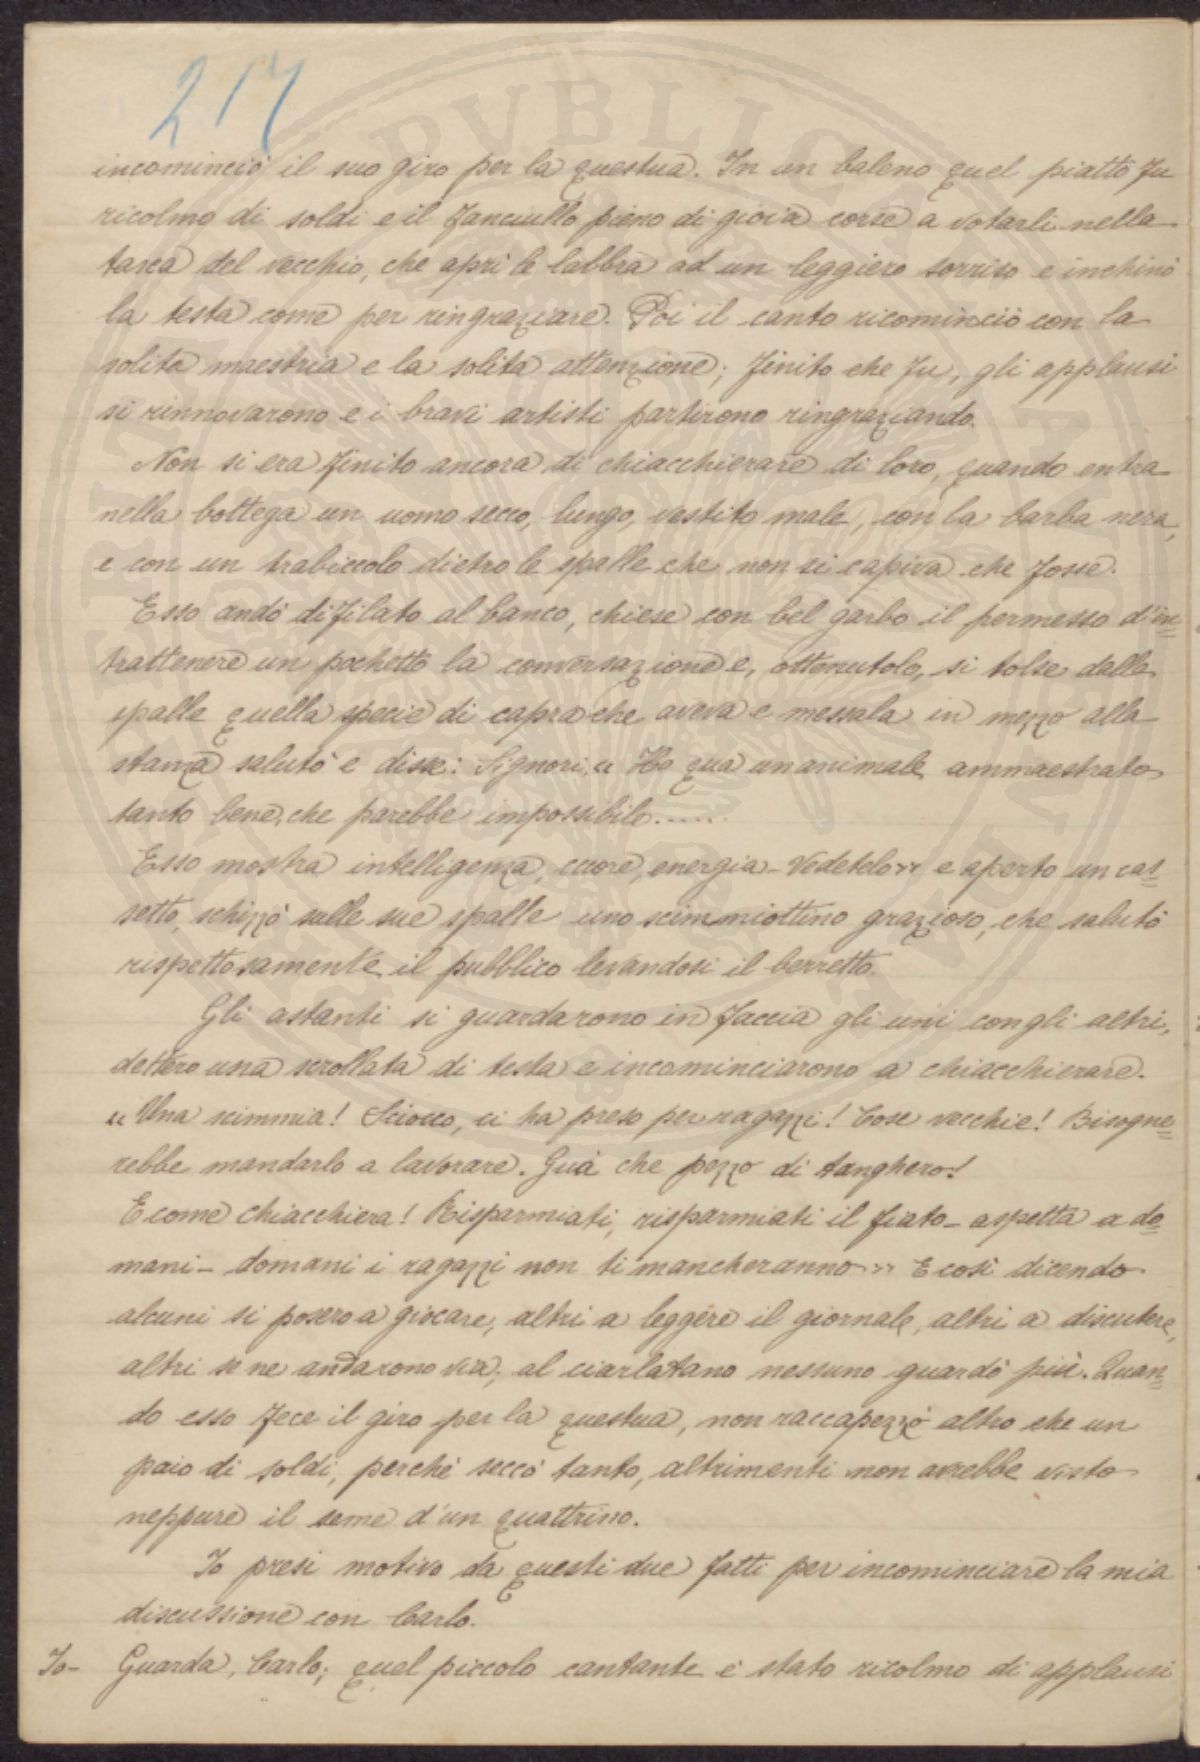 217
incominciò il suo giro per la questua. In un baleno quel piatto fu
ricolmo di soldi e il fanciullo pieno di gioia corse a votarli nella
tasca del vecchio, che aprì le labbra ad un leggiero sorriso e inchinò
la testa come per ringraziare. Poi il canto ricominciò con la
solita maestria e la solita attenzione; finito che fu, gli applausi
si rinnovarono e i bravi artisti partirono ringraziando.
Non si era finito ancora di chiacchierare di loro, quando entra
nella bottega un uomo secco, lungo, vestito male, con la barba nera,
e con un trabiccolo dietro le spalle che non si capiva che fosse.
Esso andò difilato al banco, chiese con bel garbo il permesso d'in=
trattenere un pochetto la conversazione e, ottenutolo, si tolse dalle
spalle quella specie di capra che aveva e messala in mezzo alla
stanza salutò e disse: Signori, „ Ho qua un animale ammaestrato
tanto bene, che parebbe impossibile......
Esso mostra intelligenza, cuore, energia - Vedetelo „ e aperto un cas=
setto, schizzò sulle sue spalle uno scimmiottino grazioso, che salutò
rispettosamente il pubblico levandosi il berretto.
Gli astanti si guardarono in faccia gli uni con gli altri,
dettero una scrollata di testa e incominciarono a chiacchierare.
„ Una scimmia! Sciocco, ci ha preso per ragazzi! Cose vecchie! Bisogne=
rebbe mandarlo a lavorare. Guà che pezzo di tanghero!
E come chiacchiera! Risparmiati, risparmiati il fiato - aspetta a do=
mani - domani i ragazzi non ti mancheranno „ E così dicendo
alcuni si posero a giocare, altri a leggere il giornale, altri a discutere,
altri se ne andarono via; al ciarlatano nessuno guardò più. Quan=
do esso fece il giro per la questua, non raccapezzò altro che un
paio di soldi, perché seccò tanto, altrimenti non avrebbe visto
neppure il seme d'un quattrino.
Io presi motivo da questi due fatti per incominciare la mia
discussione con Carlo.
Io- Guarda, Carlo; quel piccolo cantante è stato ricolmo di applausi